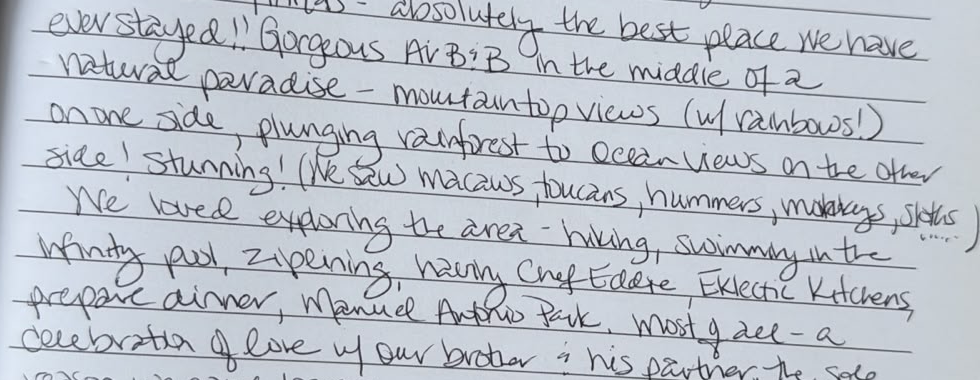 - absolutely the best place we have
ever stayed!! Gorgeous AirB&B in the middle of a
natural paradise - mountaintop views (w/ rainbows!)
on one side, plunging rainforest to ocean views on the other
side! Stunning! (We saw macaws, toucans, hummers, monkeys, sloths)
We loved exploring the area - hiking, swimming in the
infinity pool, ziplining, having Chef Eddie, Eklectic Kitchens,
prepare dinner, Manuel Antonio Park. Most of all - a
celebration of love w/ our brother & his partner. The sole